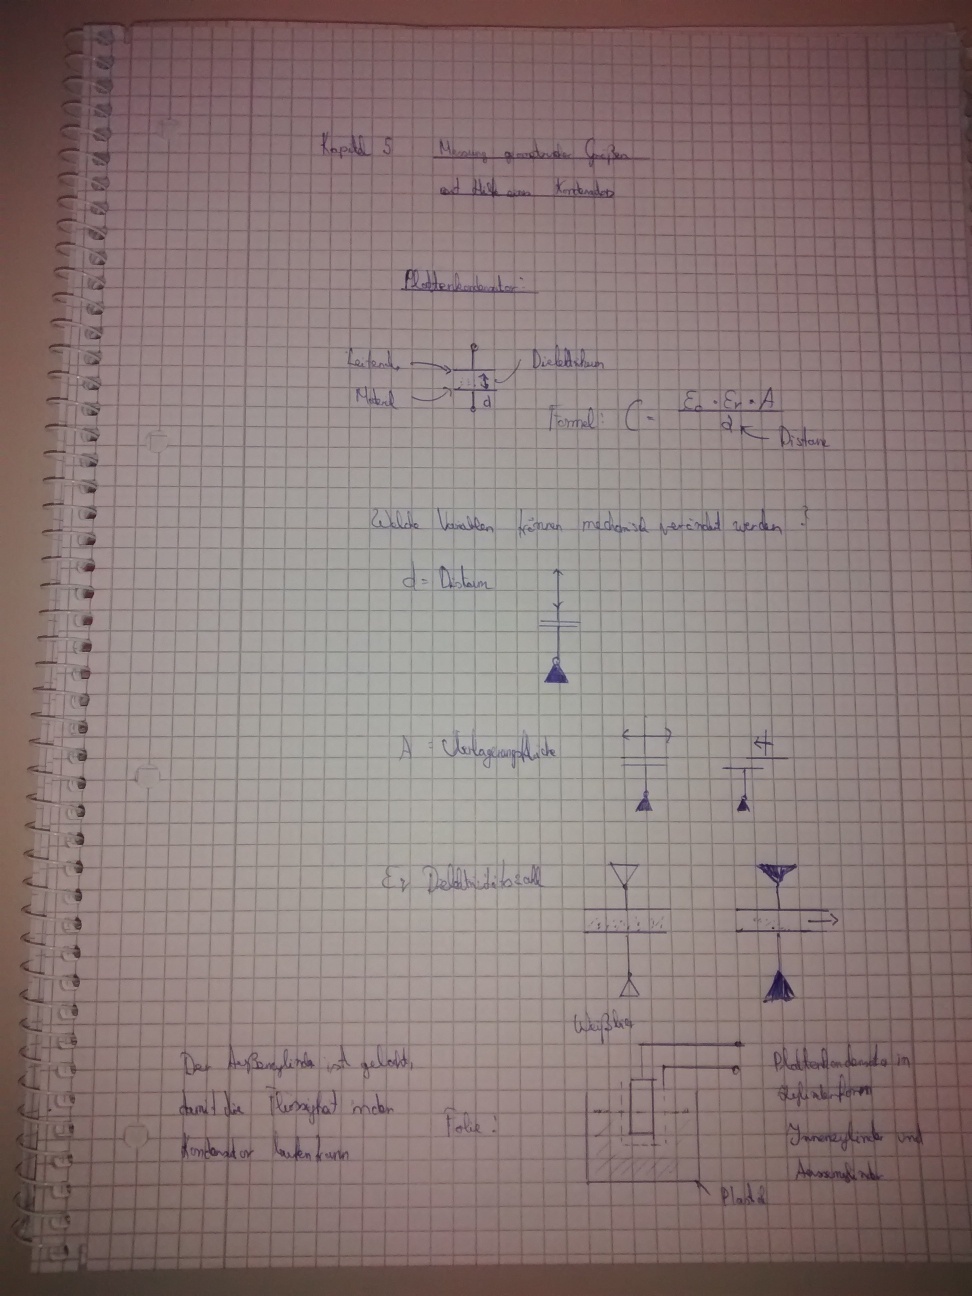 Kapitel 5 Messung geometrischer Größen
mit Hilfe eines Kondensators
Plattenkondensator:
Leitendes
Material
Dielektrikum
d
Formel: C = ε₀ · εr · A / d
Distanz
Welche Variablen können mechanisch verändert werden ?
d = Distanz
A = Überlagerungsfläche
εr Dielektrizitätszahl
Weißbier
Der Außenzylinder ist gelocht,
damit die Flüssigkeit in den
Kondensator laufen kann
Folie:
Plattenkondensator in
Zylinderform
Innenzylinder und
Aussenzylinder